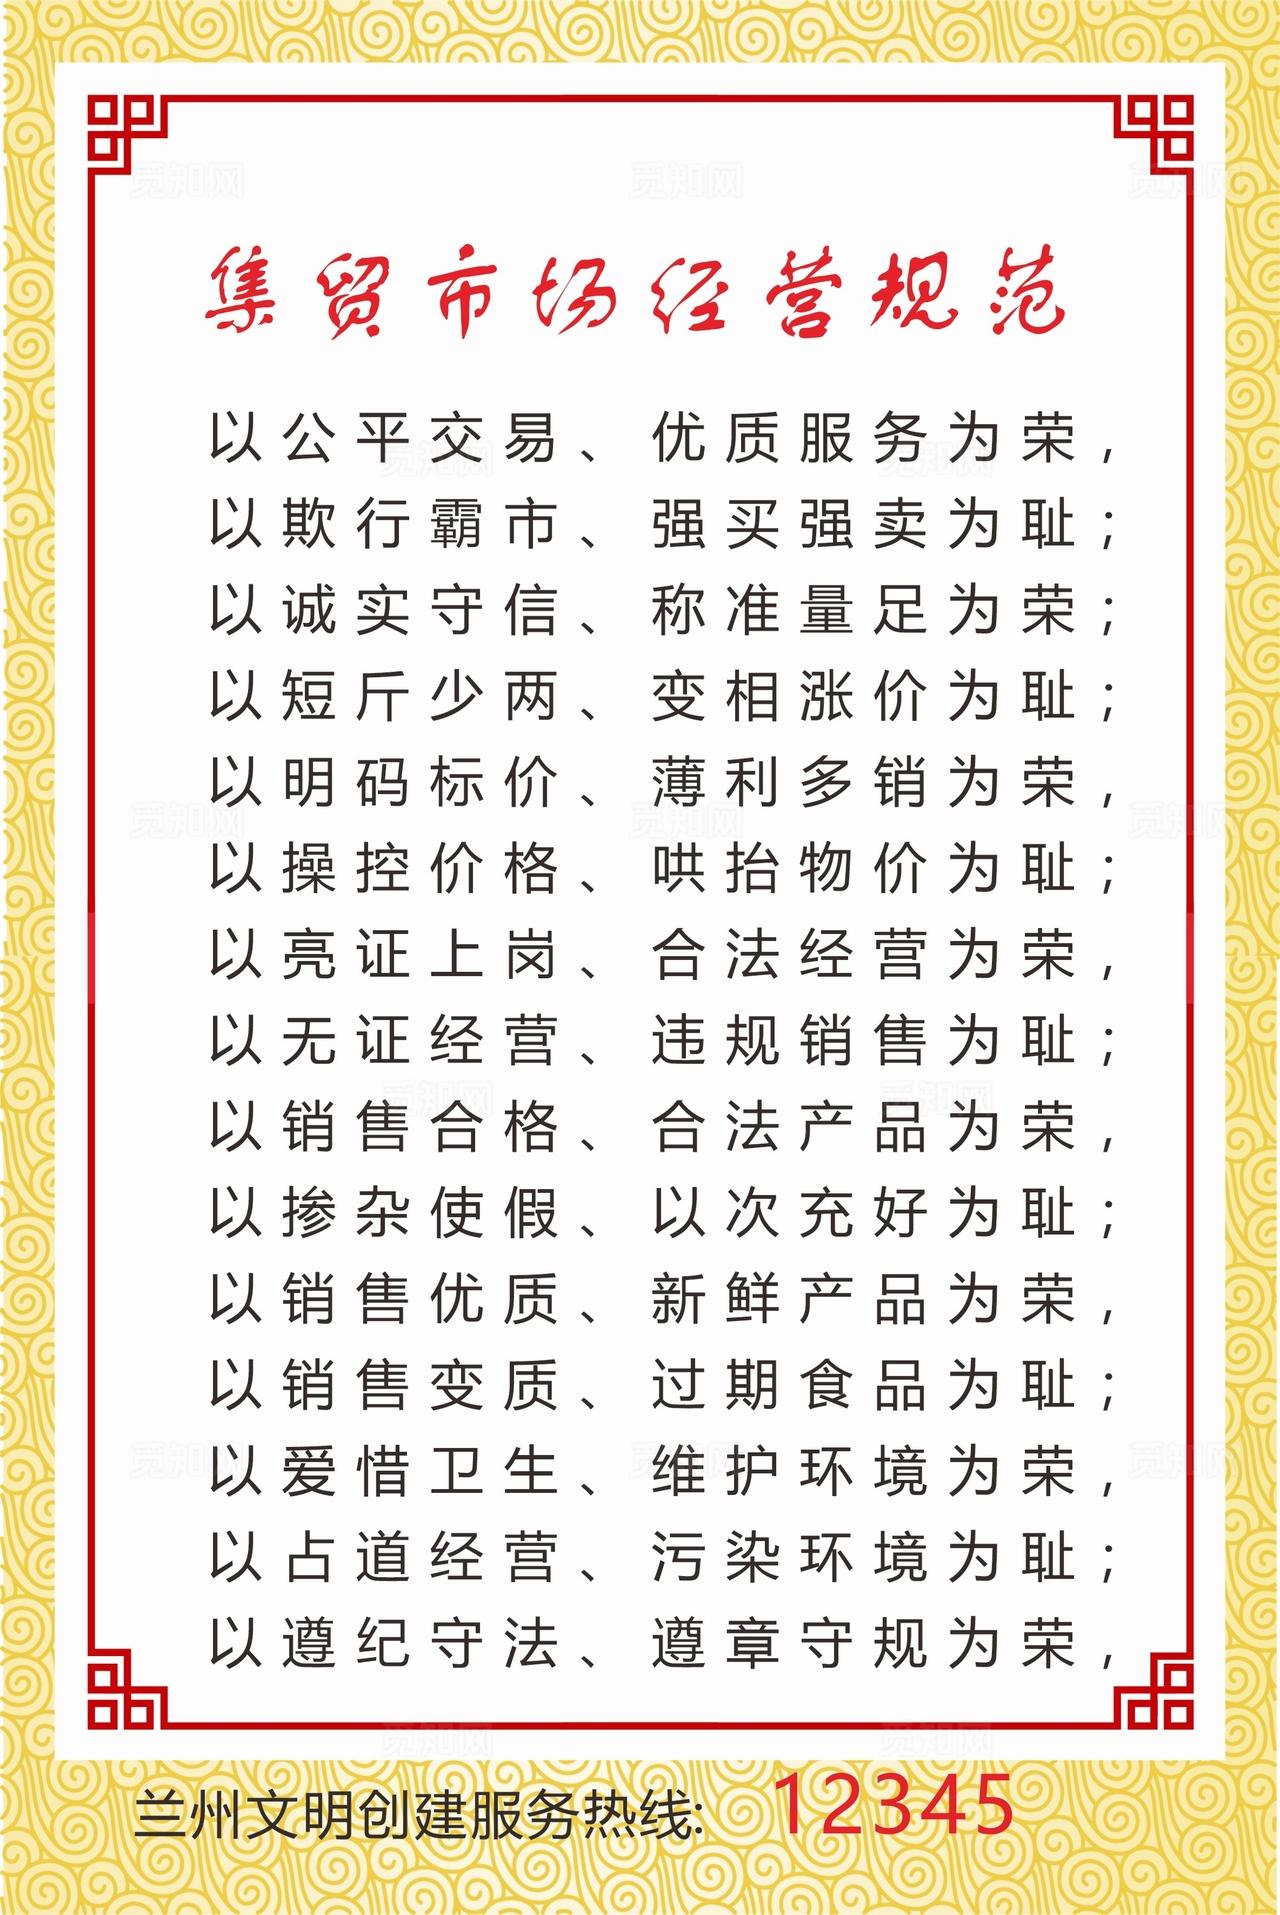 集贸市场经营规范
以公平交易、优质服务为荣，
以欺行霸市、强买强卖为耻；
以诚实守信、称准量足为荣；
以短斤少两、变相涨价为耻；
以明码标价、薄利多销为荣，
以操控价格、哄抬物价为耻；
以亮证上岗、合法经营为荣，
以无证经营、违规销售为耻；
以销售合格、合法产品为荣，
以掺杂使假、以次充好为耻；
以销售优质、新鲜产品为荣，
以销售变质、过期食品为耻；
以爱惜卫生、维护环境为荣，
以占道经营、污染环境为耻；
以遵纪守法、遵章守规为荣，
兰州文明创建服务热线: 12345
觅知网